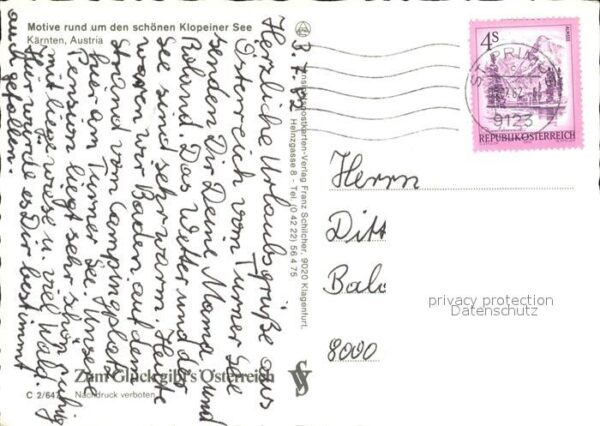 Motive rund um den schönen Klopeiner See
Kärnten, Austria
3.7.82
Herzliche Urlaubsgrüße aus
Österreich vom Turner See
senden Dir Deine Mama und
Roland. Das Wetter und der
See sind sehr warm. Heute
waren wir Baden auf dem
Strand vom Campingplatz
hier am Turner See. Unsere
Pension liegt sehr schön ruhig
mit liegewiese u. viel Wald.
Hier würde es Dir bestimmt
gefallen.
Ansichtspostkarten-Verlag Franz Schilcher, 9020 Klagenfurt,
Heinzgasse 8 - Tel. (0 42 22) 56 4 75
Zum Glück gibt's Österreich
C 2/647
Nachdruck verboten
4 S
ST. PRIMUS
9123
REPUBLIK ÖSTERREICH
Herrn
Ditt
Bald
8000
privacy protection
Datenschutz